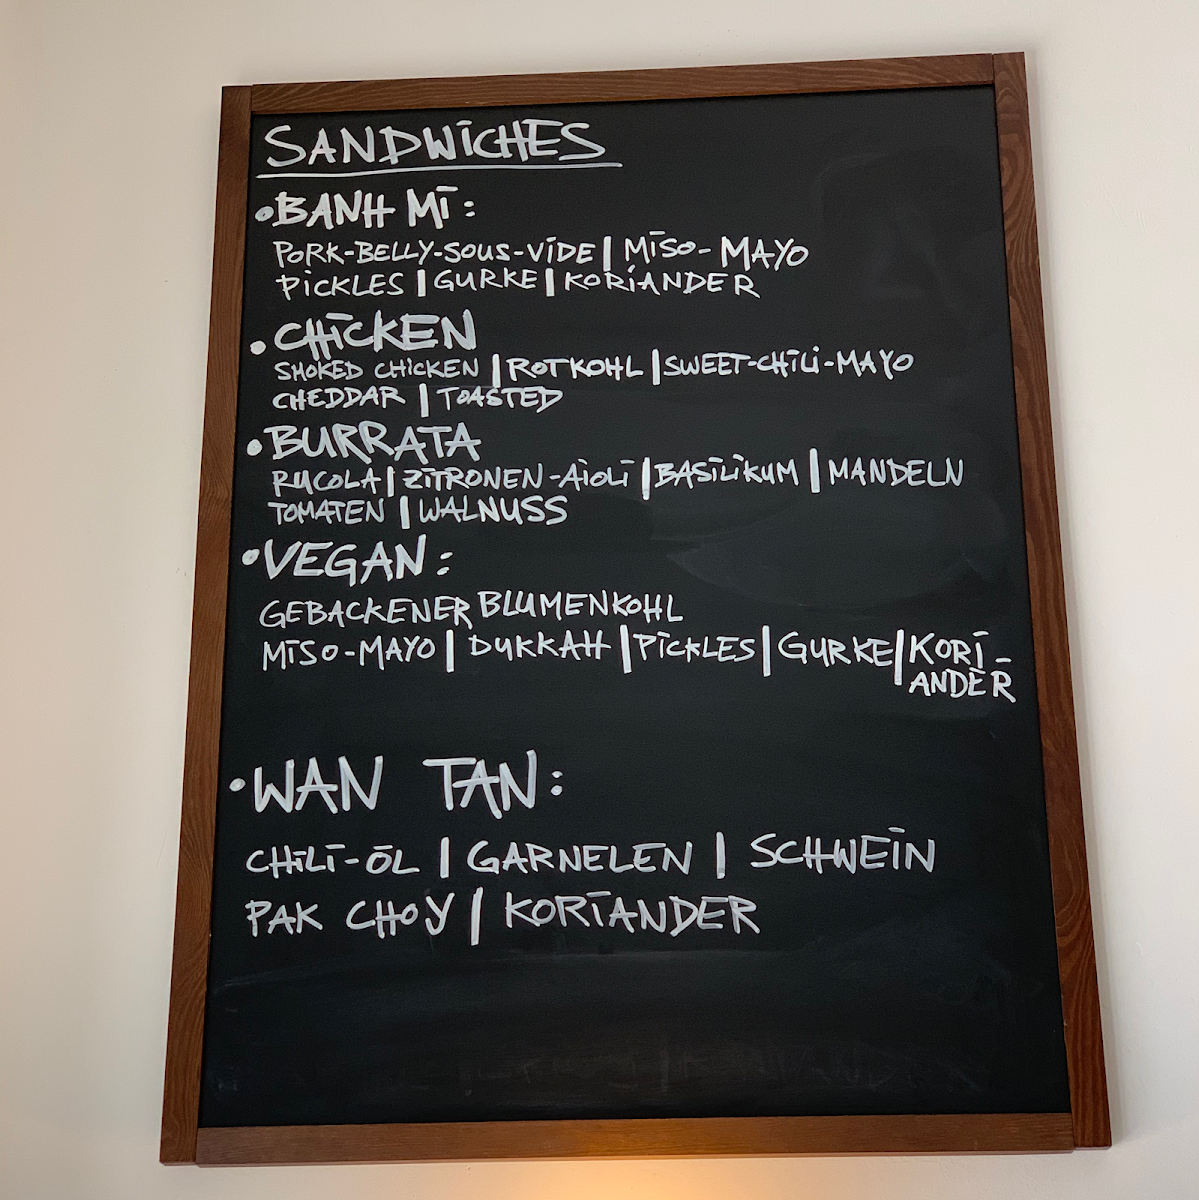 SANDWICHES
• BANH MI:
PORK-BELLY-SOUS-VIDE | MISO-MAYO
PICKLES | GURKE | KORIANDER
• CHICKEN
SMOKED CHICKEN | ROTKOHL | SWEET-CHILI-MAYO
CHEDDAR | TOASTED
• BURRATA
RUCOLA | ZITRONEN-AIOLI | BASILIKUM | MANDELN
TOMATEN | WALNUSS
• VEGAN:
GEBACKENER BLUMENKOHL
MISO-MAYO | DUKKAH | PICKLES | GURKE | KORI-
ANDER
• WAN TAN:
CHILI-ÖL | GARNELEN | SCHWEIN
PAK CHOY | KORIANDER